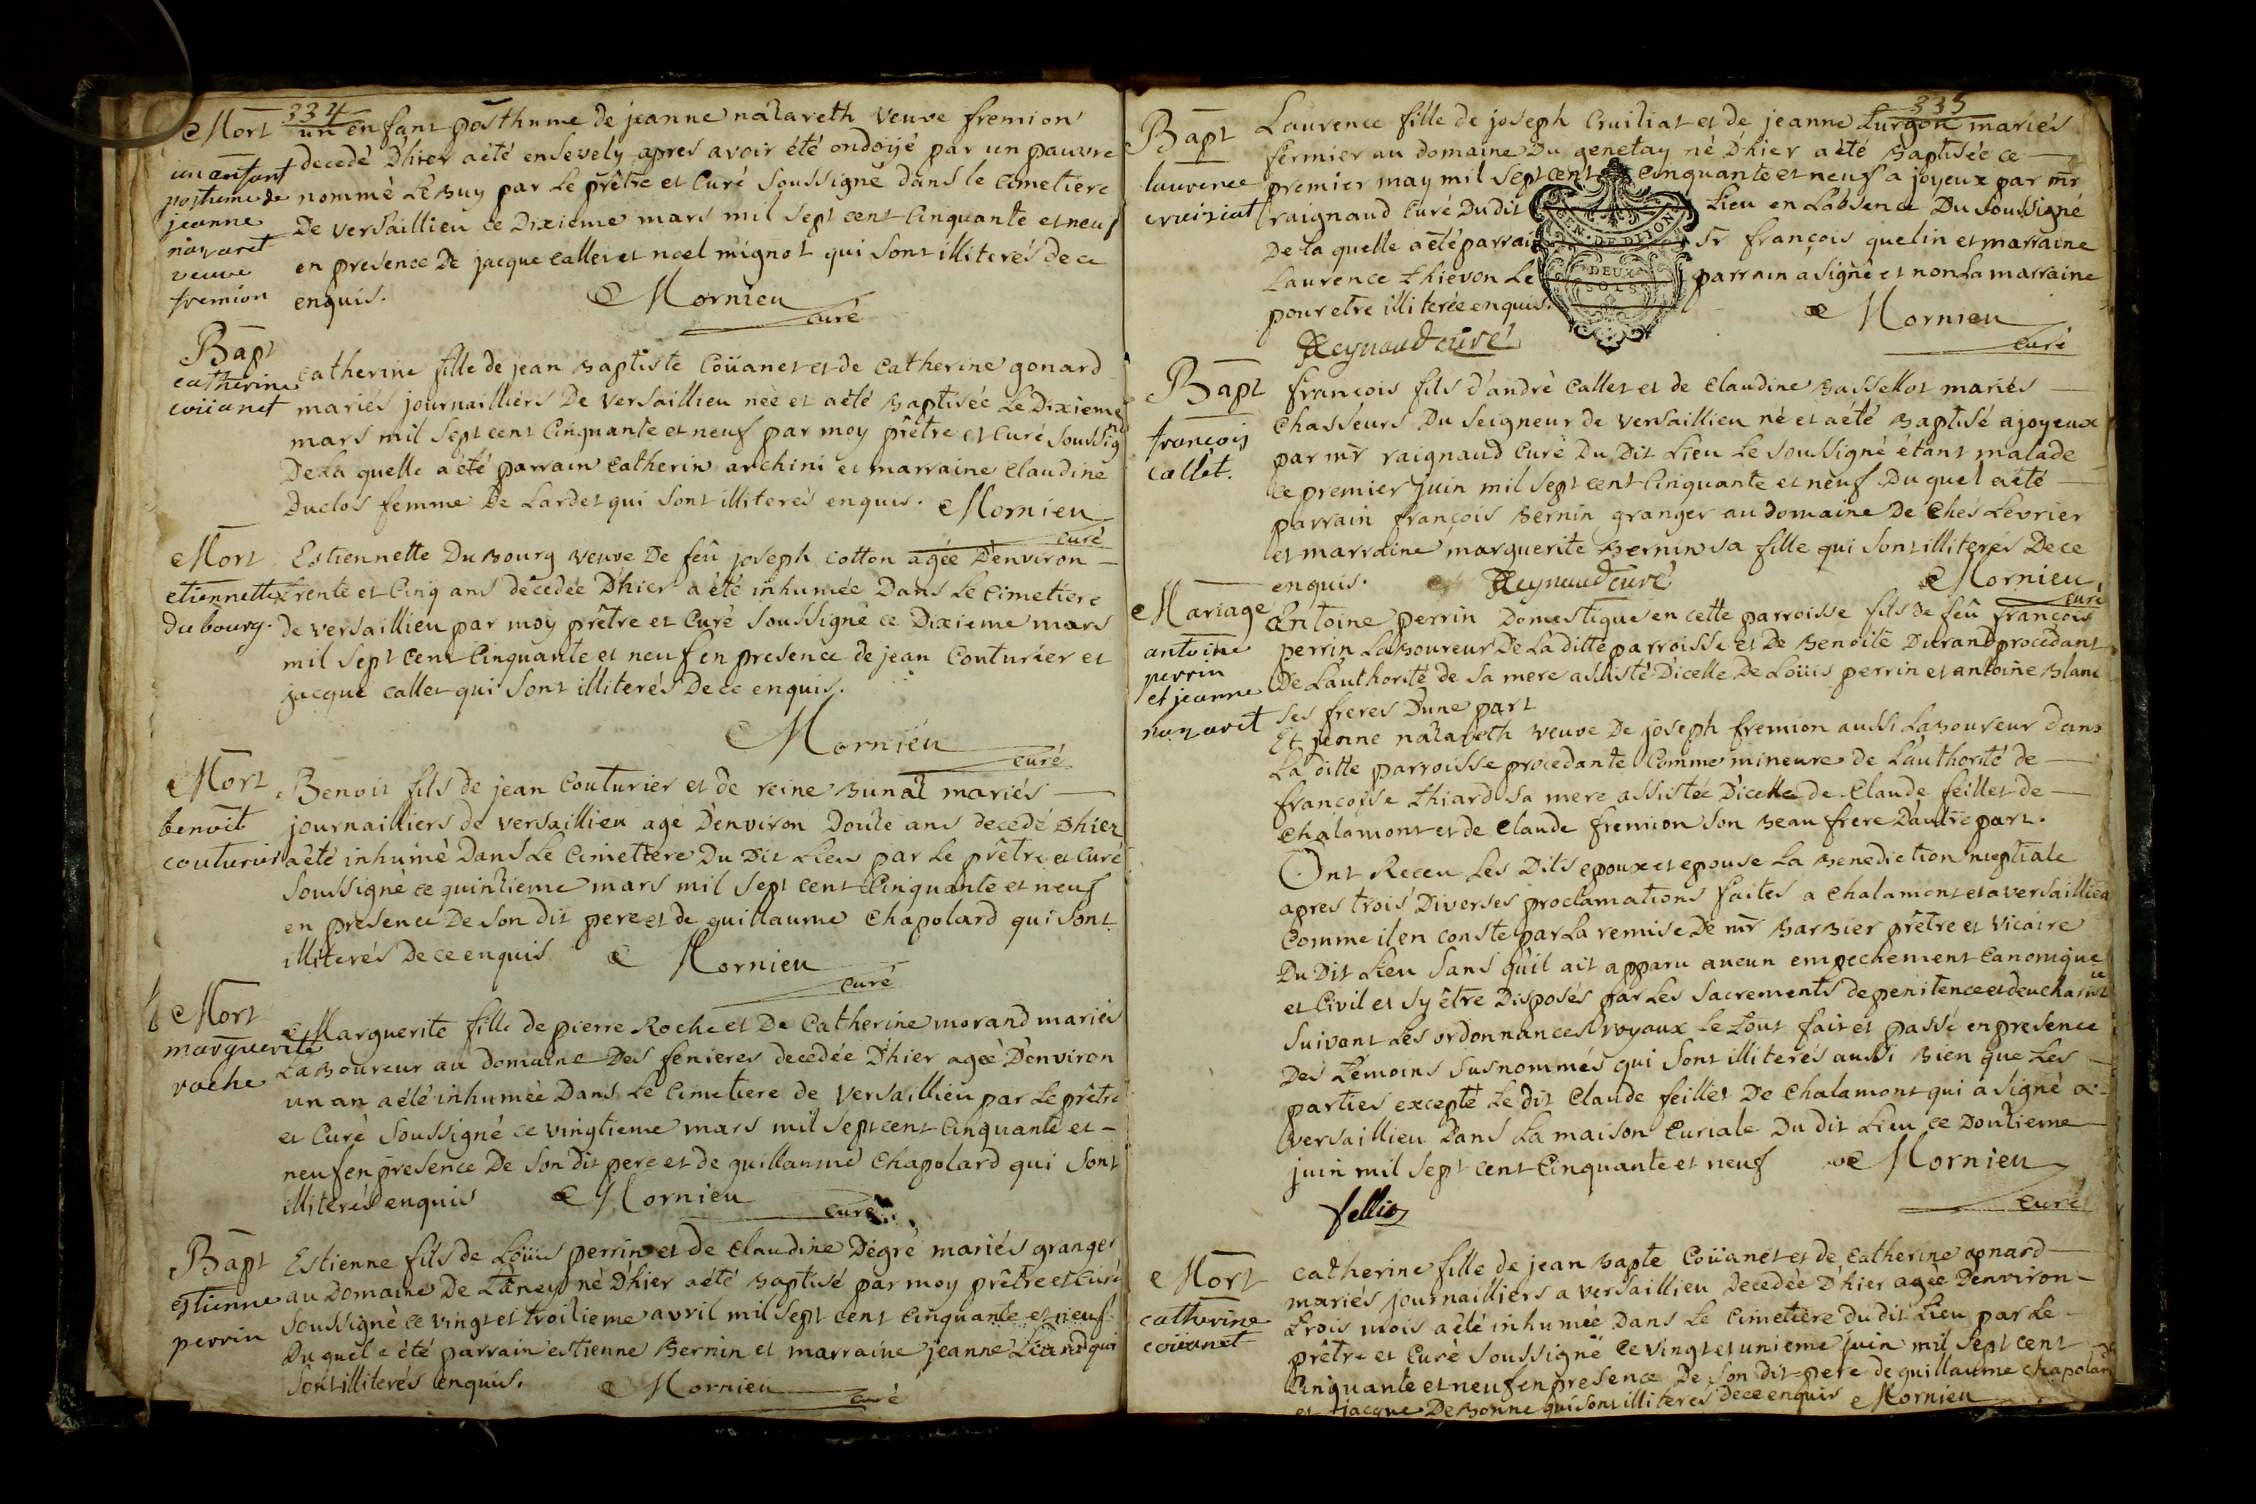 334
Mort
un enfant
postume de
jeanne
nazaret
veuve
fremion
un enfant posthume de jeanne nazareth veuve fremion
decedé Dhier a été ensevely apres avoir été ondoyé par un pauvre
nommé Le Buy par Le prêtre et Curé Soussigné dans le Cimetiere
De versaillieu ce Dixieme mars mil Sept cent Cinquante et neuf
en presence De jacque callet et noel mignot qui Sont illiterés de ce
enquis. Mornieu
curé
Bapt
catherine
coüanet
catherine fille de jean Baptiste Coüanet et de Catherine gonard
mariés journailliers De versaillieu née et a été Baptisée Le Dixieme
mars mil Sept cent Cinquante et neuf par moy prêtre et Curé Soussig
De La quelle a été parrain Catherin archini et marraine Claudine
Duclos femme De Lardet qui Sont illiterés enquis. Mornieu
curé
Mort
etiennette
du bourg.
Estiennette Du Bourg veuve De feû joseph cotton agée D'environ
trente et Cinq ans décedée D'hier a été inhumée Dans Le Cimetiere
de versaillieu par moy prêtre et Curé Soussigné ce Dixieme mars
mil Sept Cent Cinquante et neuf en presence de jean Couturier et
jacque callet qui Sont illiterés De ce enquis.
Mornieu
curé
Mort
benoit
couturier
Benoit fils de jean Couturier et de reine Bunal mariés
journailliers de versaillieu agé D'environ Douze ans decedé Dhier
a été inhumé Dans Le Cimetiere Du Dit Lieu par Le prêtre et Curé
Soussigné ce quinzieme mars mil Sept cent Cinquante et neuf
en presence De Son dit pere et de guillaume Chapolard qui Sont
illiterés De ce enquis Mornieu
curé
Mort
marguerite
roche
Marguerite fille de pierre Roche et De Catherine morand mariés
Laboureur au domaine Des fenieres decedée D'hier agée D'environ
un an a été inhumée Dans Le Cimetiere de versaillieu par Le prêtre
et Curé Soussigné ce vingtieme mars mil Sept cent Cinquante et
neuf en presence De Son dit pere et de guillaume Chapolard qui Sont
illiterés enquis Mornieu
curé
Bapt
estienne
perrin
Estienne fils de Loüis perrin et de Claudine Degré mariés granger
au Domaine De né D'hier a été Baptisé par moy prêtre et Curé
Soussigné ce vingt et troizieme avril mil Sept cent Cinquante et neuf
Du quel a été parrain estienne Bernin et marraine jeanne qui
Sont illiterés enquis. Mornieu
curé
335
Bapt
laurence
cruiziat
Laurence fille de joseph Cruiliat et de jeanne Turgon mariés
fermier au domaine Du genetay né D'hier a été Baptisée ce
premier may mil Sept cent Cinquante et neuf a joyeux par mr
raignaud Curé Du dit Lieu en L'absence Du Soussigné
De La quelle a été parrain Sr françois quelin et marraine
Laurence thievon Le parrain a Signé et non La marraine
pour etre illiterée enquis.
G N. DE DIJON
DEUX
SOLS
Mornieu
curé
Reynaud curé
Bapt
françois
callet.
françois fils d'andré Callet et de Claudine Bassellot mariés
Chasseurs Du Seigneur de versaillieu né et a été Baptisé a joyeux
par mr raignaud Curé Du Dit Lieu Le Soussigné étant malade
ce premier juin mil Sept cent Cinquante et neuf Du quel a été
parrain françois Bernin granger au domaine De Chés Levrier
et marraine marguerite Bernin Sa fille qui Sont illiterés De ce
enquis. Reynaud curé Mornieu
curé
Mariage
antoine
perrin
et jeanne
nazaret
Antoine perrin Domestique en cette parroisse fils De feû françois
perrin Laboureur De La ditte parroisse et De Benoite Durand procedant
De L'authorité de Sa mere assisté D'icelle De Loüis perrin et antoine Blanc
Ses freres D'une part
Et jeanne nazareth veuve De joseph fremion aussi Laboureur dans
La ditte parroisse procedante Comme mineure de L'authorité de
françoise thiard Sa mere assistée D'icelle de Claude feillet de
Chalamont et de Claude fremion Son Beau frere D'autre part.
Ont Receu Les Dits epoux et epouse La Benediction nuptiale
apres trois Diverses proclamations faites a Chalamont et a versaillieu
Comme il en conste par La remise De mr Barbier prêtre et vicaire
Du Dit Lieu Sans qu'il ait apparu aucun empechement Canonique
et Civil et Sy être Disposés par Les Sacrements de penitence et deucharistie
Suivant Les ordonnances royaux Le Tout fait et passé en presence
Des Témoins Susnommés qui Sont illiterés aussi Bien que Les
parties excepté Le dit Claude feillet De Chalamont qui a Signé a
versaillieu Dans La maison Curiale Du dit Lieu ce Douzieme
juin mil Sept cent Cinquante et neuf Mornieu
curé
Mort
catherine
coüanet
Catherine fille de jean Bapte Coüanet et de Catherine gonard
mariés journailliers a versaillieu Decedée D'hier agée D'environ
trois mois a été inhumée Dans Le Cimetiere du dit Lieu par Le
prêtre et Curé Soussigné Ce vingt et unieme juin mil Sept cent
Cinquante et neuf en presence De Son dit pere de guillaume Chapolard
et jacque De Bonne qui Sont illiterés De ce enquis Mornieu